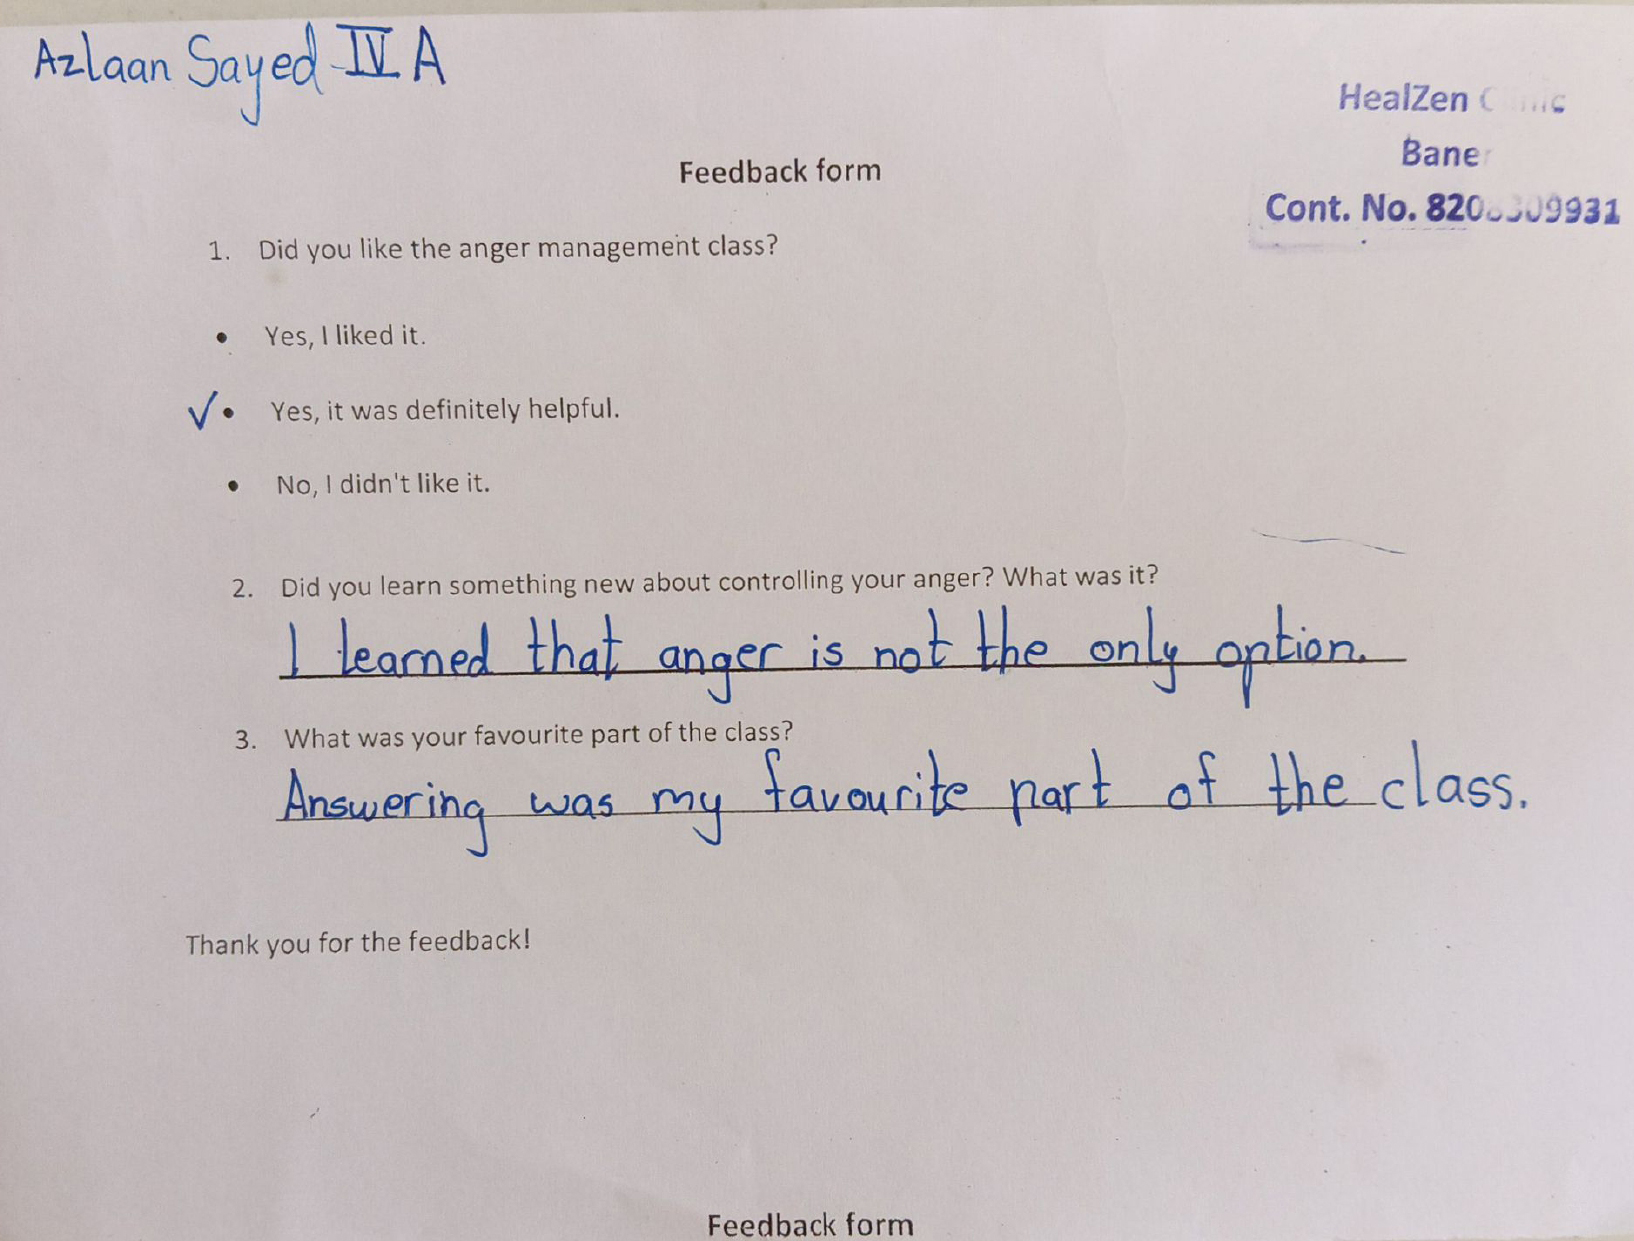 Azlaan Sayed IV A
HealZen
Bane
Cont. No.
Feedback form
1. Did you like the anger management class?
• Yes, I liked it.
✓• Yes, it was definitely helpful.
• No, I didn't like it.
2. Did you learn something new about controlling your anger? What was it?
I learned that anger is not the only option.
3. What was your favourite part of the class?
Answering was my favourite part of the class.
Thank you for the feedback!
Feedback form